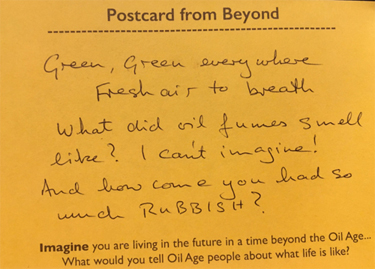 Postcard from Beyond
Green, Green everywhere
Fresh air to breath
What did oil fumes smell
like? I can't imagine!
And how come you had so
much RUBBISH?
Imagine you are living in the future in a time beyond the Oil Age...
What would you tell Oil Age people about what life is like?